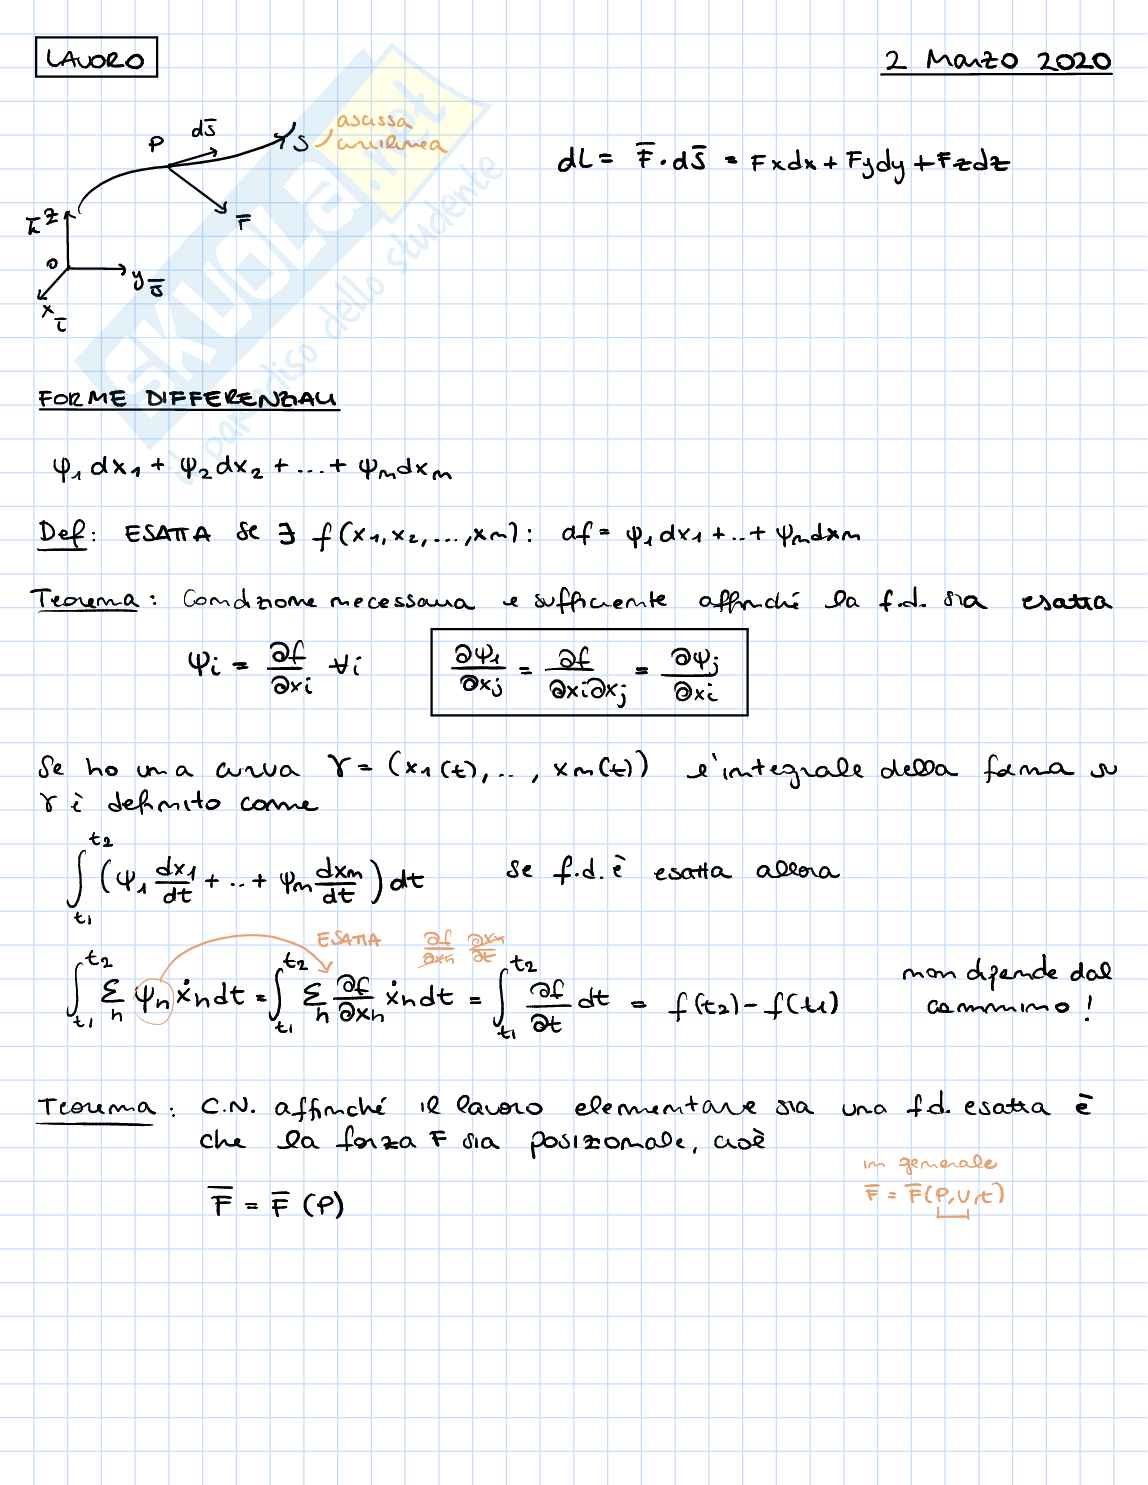 LAVORO
2 Marzo 2020
P ds̄ S ascissa
curvilinea
F̄
k̄ z
O
y j̄
x ī
dL = F̄ · ds̄ = Fxdx + Fydy + Fzdz
SKUOLA.net
il paradiso dello studente
FORME DIFFERENZIALI
ψ₁ dx₁ + ψ₂ dx₂ + ... + ψₙ dxₙ
Def: ESATTA se ∃ f(x₁, x₂, ..., xₙ): df = ψ₁ dx₁ + .. + ψₙ dxₙ
Teorema: Condizione necessaria e sufficiente affinché la f.d. sia esatta
ψi = ∂f/∂xi ∀i ∂ψ₁/∂xj = ∂f/∂xi∂xj = ∂ψj/∂xi
Se ho una curva γ = (x₁(t), .., xₙ(t)) l'integrale della forma su
γ è definito come
∫_{t₁}^{t₂} (ψ₁ dx₁/dt + .. + ψₙ dxₙ/dt) dt se f.d. è esatta allora
ESATTA ∂f/∂xh ∂xh/∂t
∫_{t₁}^{t₂} Σ_h ψh ẋh dt = ∫_{t₁}^{t₂} Σ_h ∂f/∂xh ẋh dt = ∫_{t₁}^{t₂} ∂f/∂t dt = f(t₂) - f(t₁) non dipende dal
cammino!
Teorema: C.N. affinché il lavoro elementare sia una f.d. esatta è
che la forza F sia posizionale, cioè
in generale
F̄ = F̄ (P)
F̄ = F̄(P, v, t)